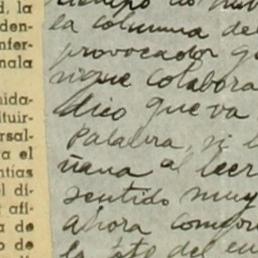 d, la
den-
nfer-
nala
nida-
tituir-
rsal-
a el
ntías
l di-
r afi-
a de
o de
la columna de
provocador q
sigue colabora
dico que va
Palabra, si l
ñana al leer
sentido muy
ahora compr
la del eu